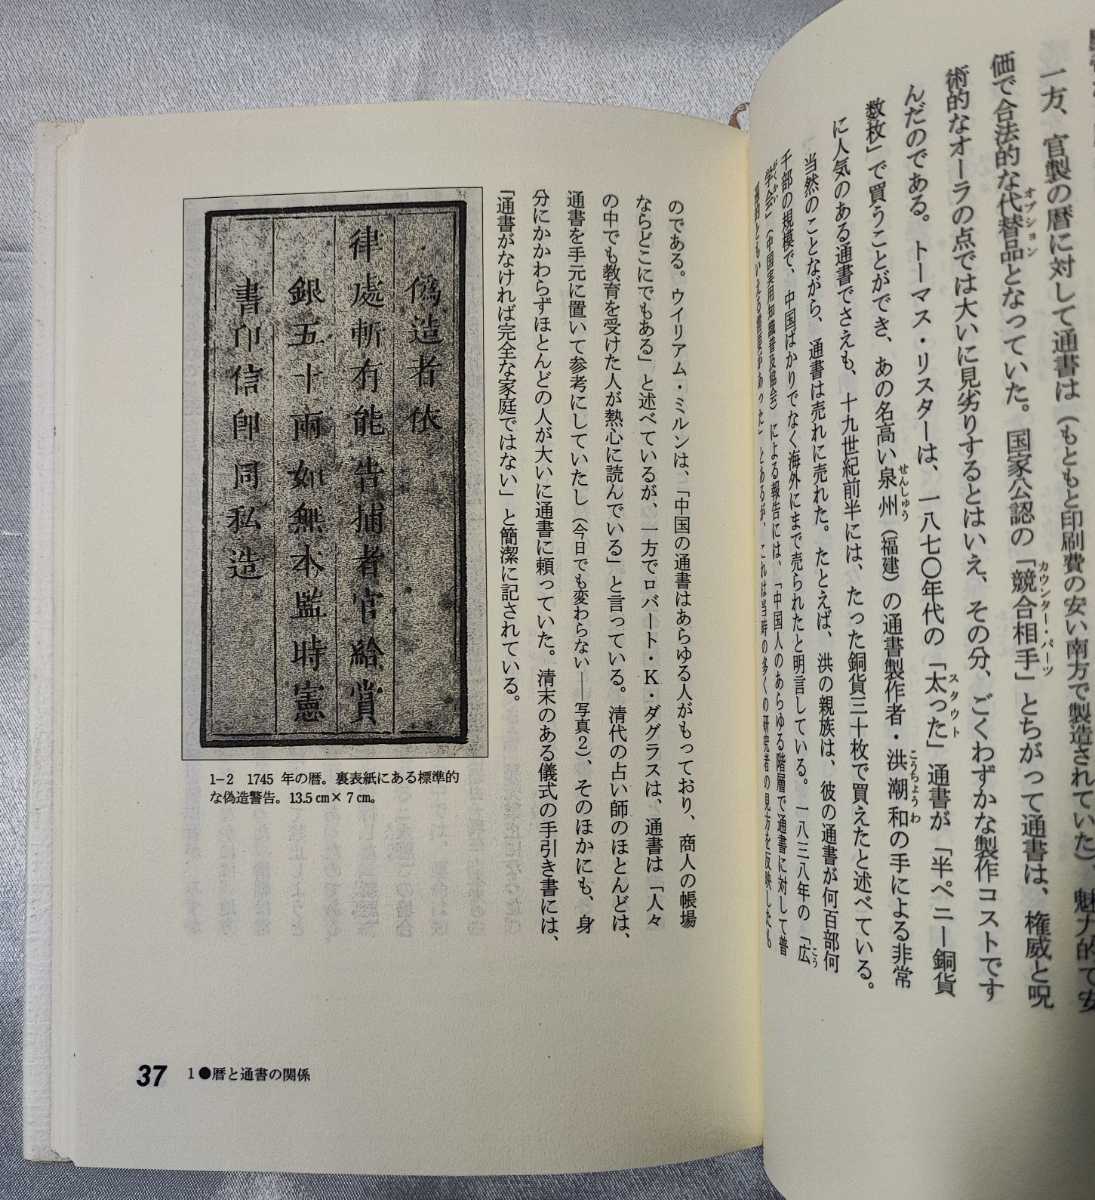 一方、官製の暦に対して通書は（もともと印刷費の安い南方で製造されていた）、魅力的で安
価で合法的な代替品となっていた。国家公認の「競合相手」とちがって通書は、権威と呪
オプション
カウンター・パーツ
術的なオーラの点では大いに見劣りするとはいえ、その分、ごくわずかな製作コストです
んだのである。トーマス・リスターは、一八七〇年代の「太った」通書が「半ペニー銅貨
スタウト
数枚」で買うことができ、あの名高い泉州（福建）の通書製作者・洪潮和の手による非常
せんしゅう
こうちょうわ
に人気のある通書でさえも、十九世紀前半には、たった銅貨三十枚で買えたと述べている。
当然のことながら、通書は売れに売れた。たとえば、洪の親族は、彼の通書が何百部何
千部の規模で、中国ばかりでなく海外にまで売られたと明言している。一八三八年の「広
こう
学会」（中国実用知識普及協会）による報告には、「中国人のあらゆる階層で通書に対して普
のである。ウイリアム・ミルンは、「中国の通書はあらゆる人がもっており、商人の帳場
ならどこにでもある」と述べているが、一方でロバート・K・ダグラスは、通書は「人々
の中でも教育を受けた人が熱心に読んでいる」と言っている。清代の占い師のほとんどは、
通書を手元に置いて参考にしていたし（今日でも変わらない――写真2）、そのほかにも、身
分にかかわらずほとんどの人が大いに通書に頼っていた。清末のある儀式の手引き書には、
「通書がなければ完全な家庭ではない」と簡潔に記されている。
偽造者依
律處斬有能告捕者官給賞
銀五十兩如無本監時憲
書印信即同私造
1−2 1745 年の暦。裏表紙にある標準的
な偽造警告。13.5 ㎝× 7 ㎝。
37 1●暦と通書の関係